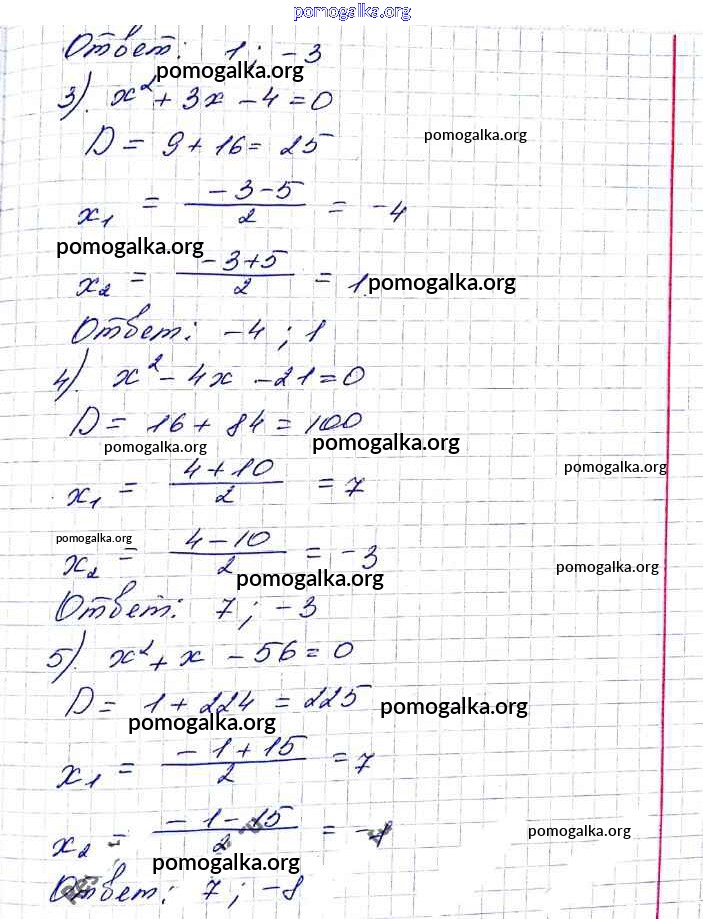 pomogalka.org
Ответ: 1; -3
pomogalka.org
3). x² + 3x - 4 = 0
pomogalka.org
D = 9 + 16 = 25
x₁ = (-3-5)/2 = -4
pomogalka.org
x₂ = (-3+5)/2 = 1
pomogalka.org
Ответ: -4 ; 1
4). x² - 4x - 21 = 0
D = 16 + 84 = 100
pomogalka.org
pomogalka.org
pomogalka.org
x₁ = (4+10)/2 = 7
pomogalka.org
x₂ = (4-10)/2 = -3
pomogalka.org
pomogalka.org
Ответ: 7 ; -3
5). x² + x - 56 = 0
D = 1 + 224 = 225
pomogalka.org
pomogalka.org
x₁ = (-1+15)/2 = 7
x₂ = (-1-15)/2 = -
pomogalka.org
pomogalka.org
Ответ: 7 ; -8